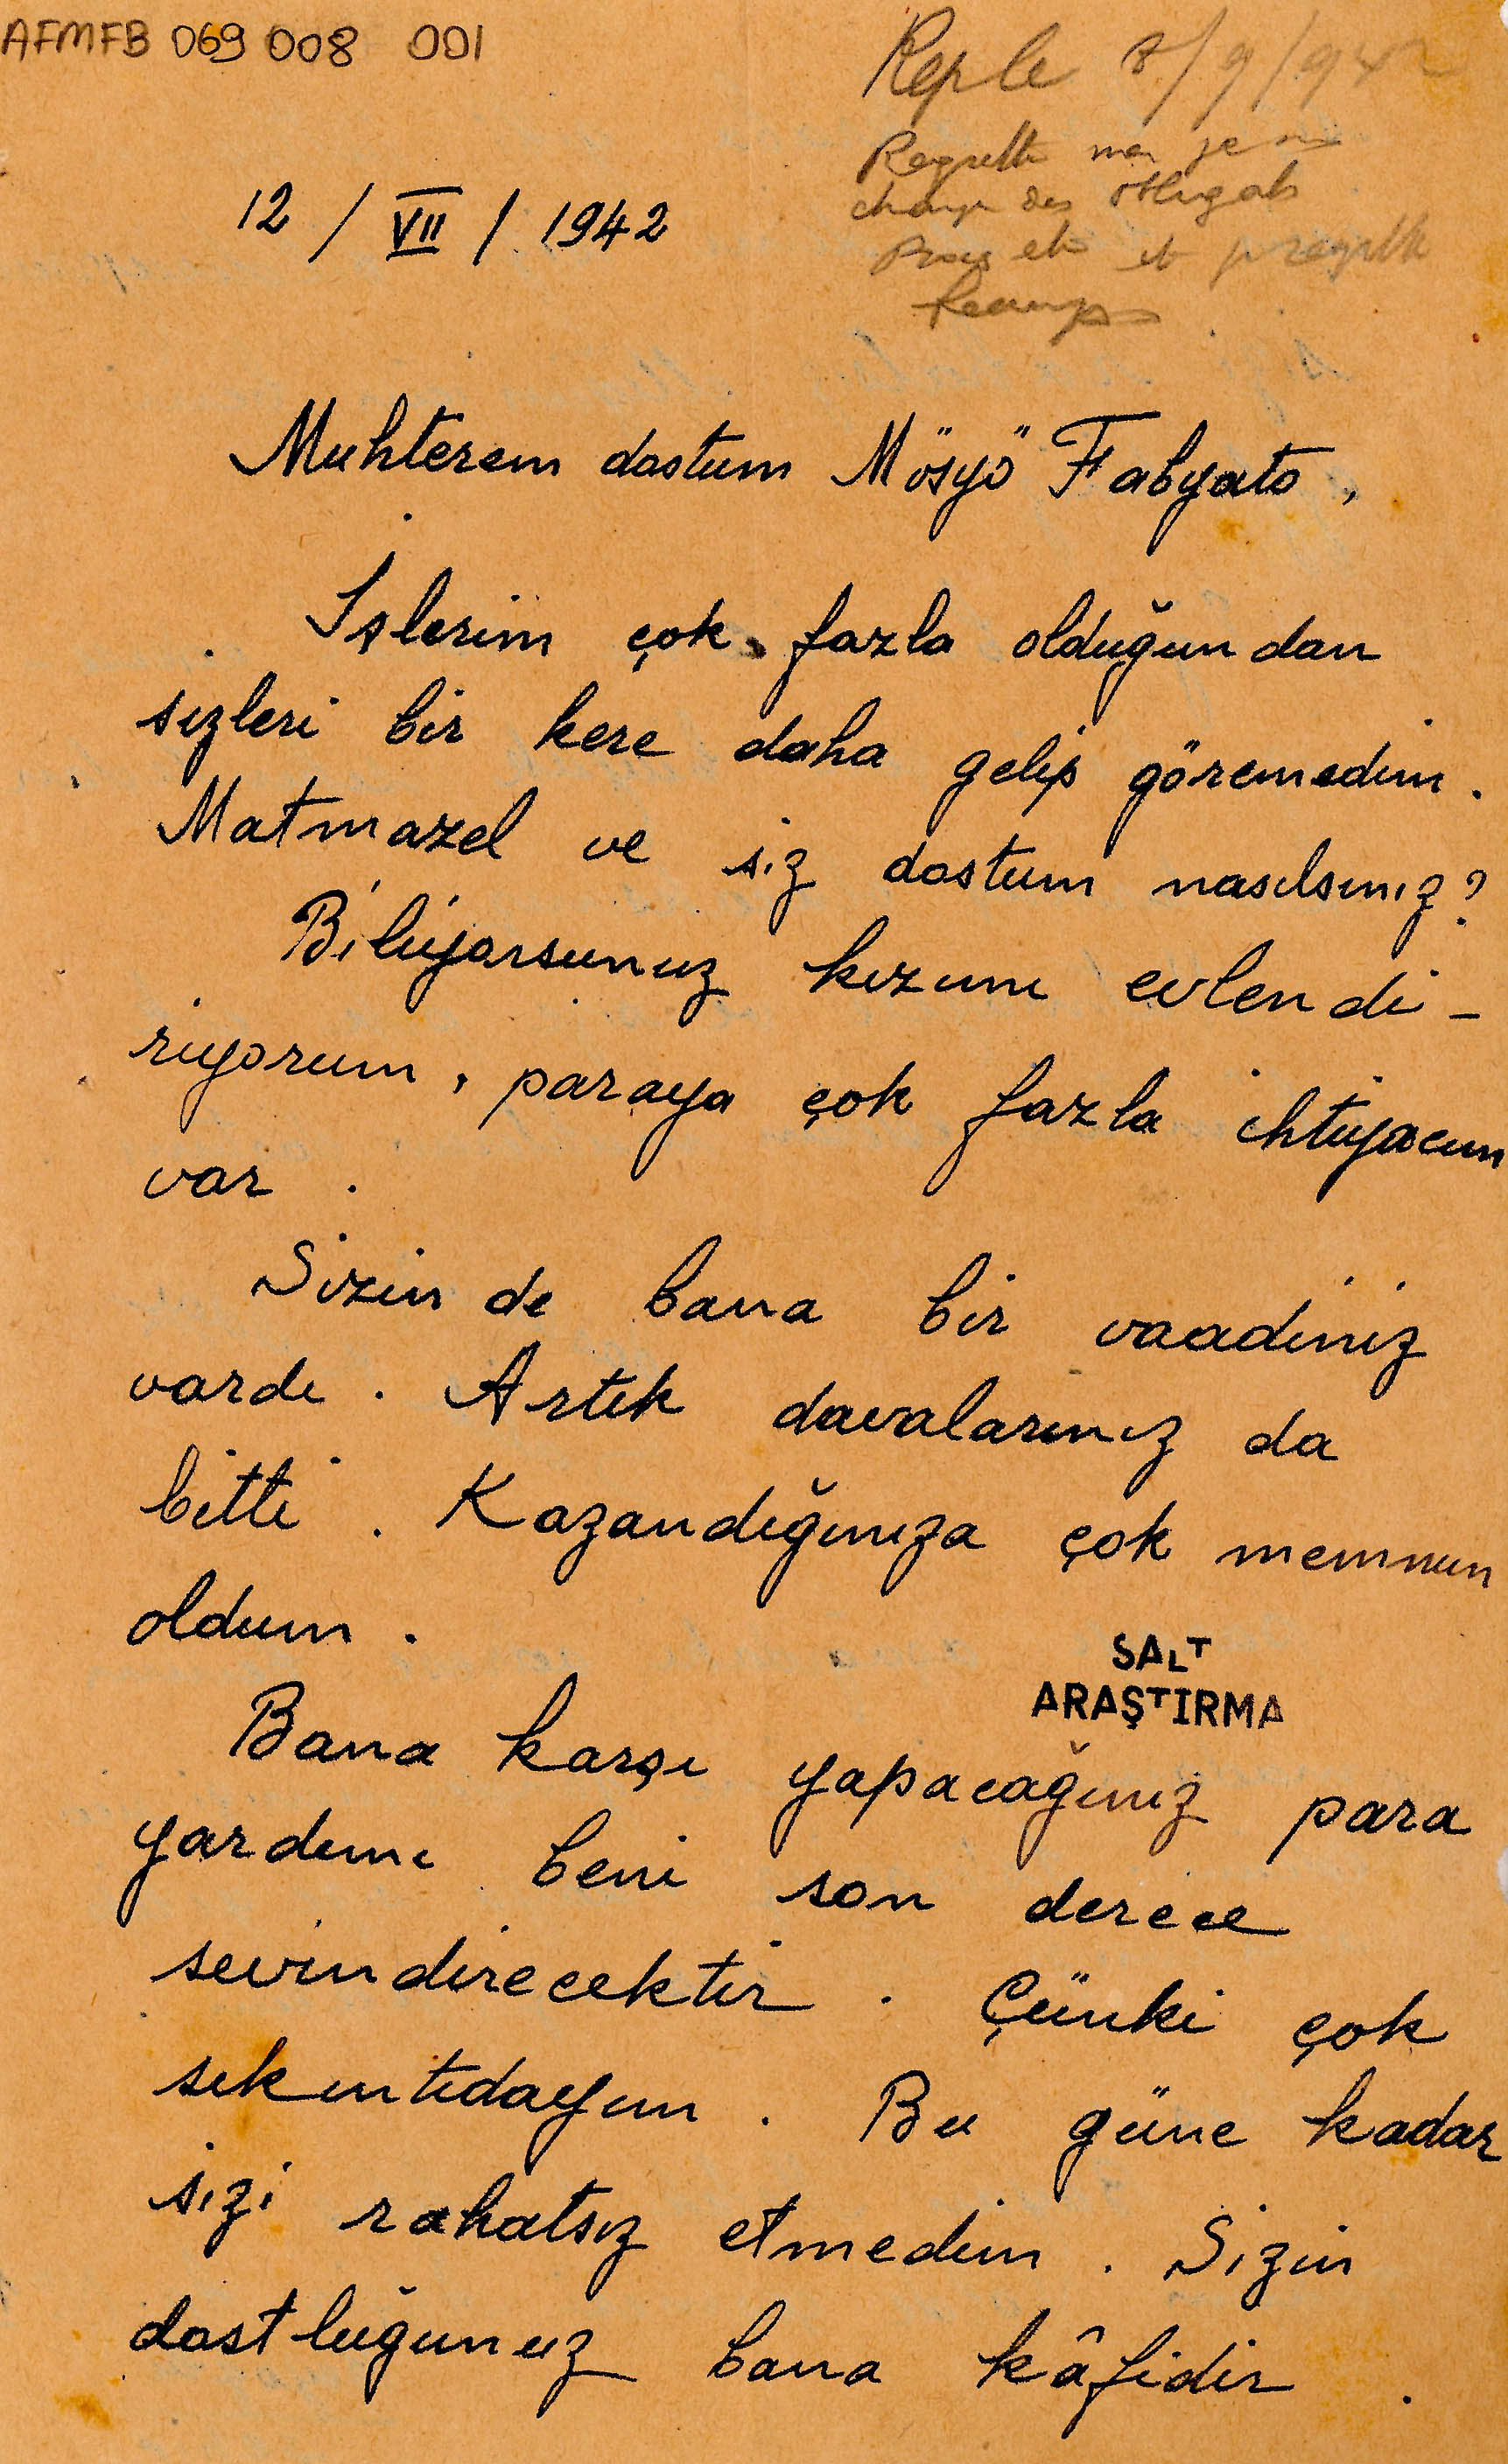 AFMFB 069 008 001
Reple 8/9/942
Regrette mais je
charge des
et
12 / VII / 1942
Muhterem dostum Mösyö Fabyato,
İşlerim çok fazla olduğundan
sizleri bir kere daha gelip göremedim.
Matmazel ve siz dostum nasılsınız?
Biliyorsunuz kızımı evlendi-
riyorum, paraya çok fazla ihtiyacım
var.
Sizin de bana bir vaadiniz
vardı. Artık davalarınız da
bitti. Kazandığınıza çok memnun
oldum.
SALT
ARAŞTIRMA
Bana karşı yapacağınız para
yardımı beni son derece
sevindirecektir. Çünki çok
sıkıntıdayım. Bu güne kadar
sizi rahatsız etmedim. Sizin
dostluğunuz bana kâfidir.